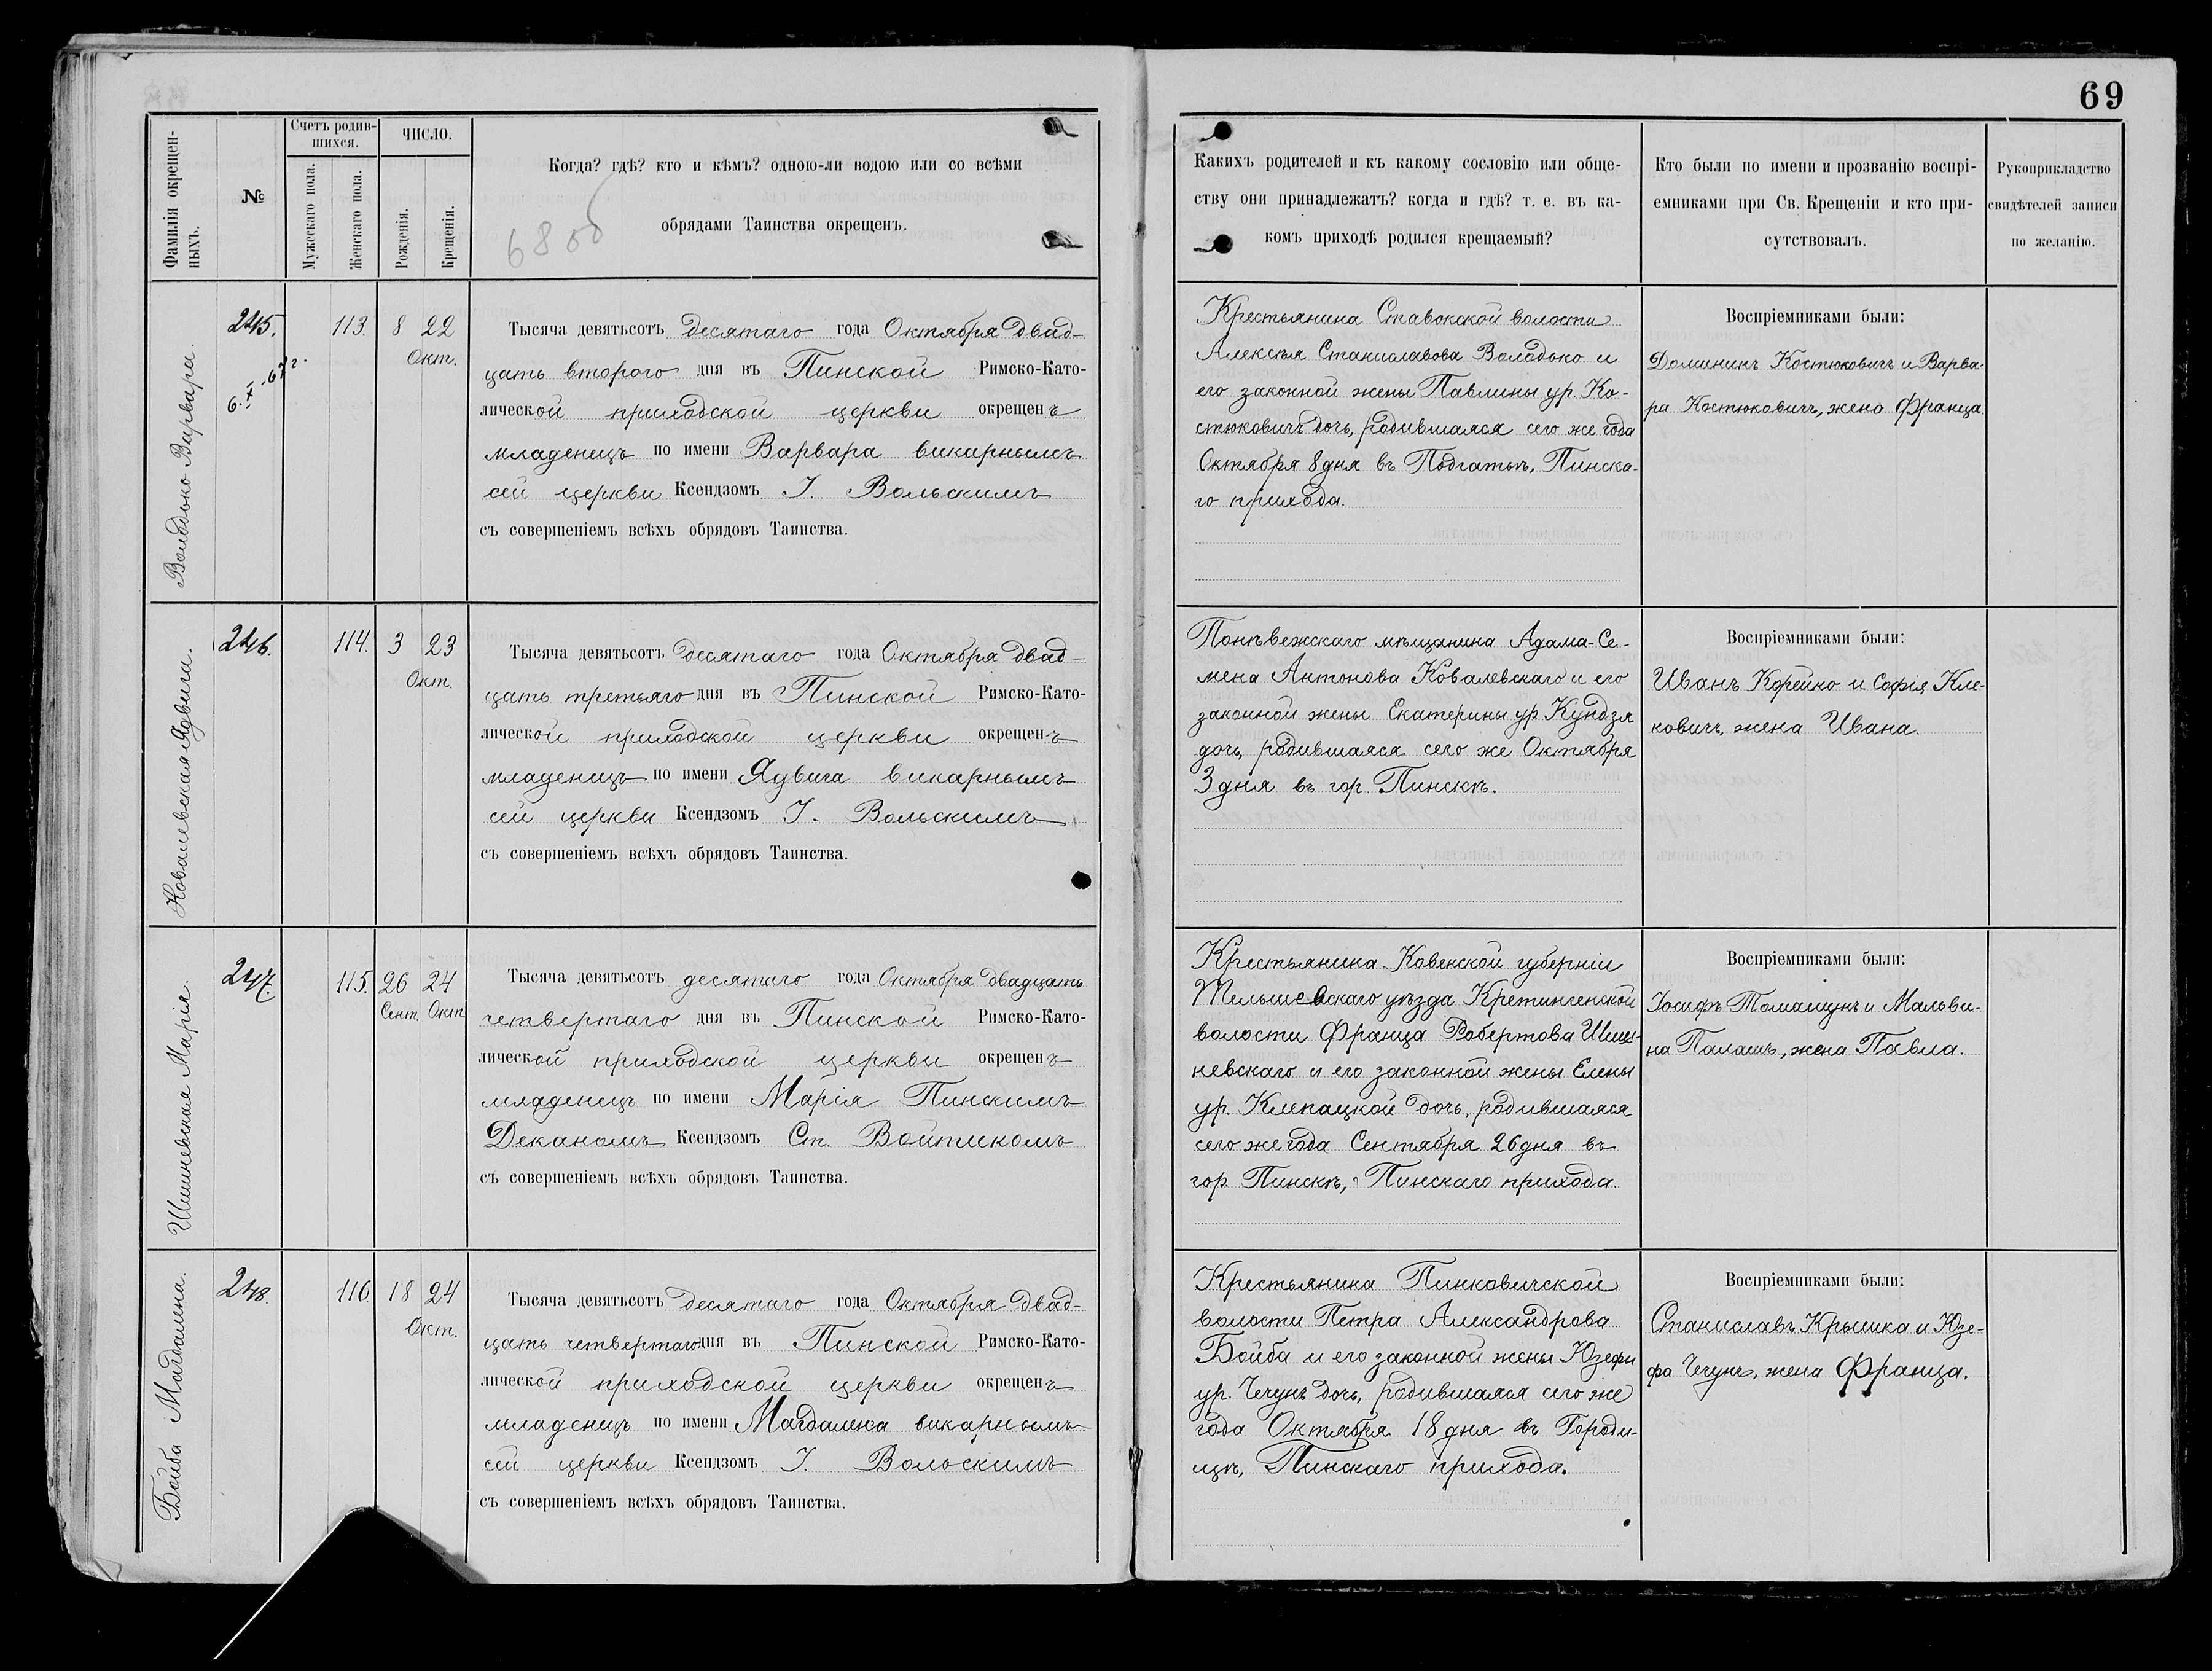 69
Фамилія окрещен-
ныхъ.
№
Счетъ родив-
шихся.
Мужескаго пола.
Женскаго пола.
ЧИСЛО.
Рожденія.
Крещенія.
Когда? гдѣ? кто и кѣмъ? одною-ли водою или со всѣми
обрядами Таинства окрещенъ.
Какихъ родителей и къ какому сословію или обще-
ству они принадлежатъ? когда и гдѣ? т. е. въ ка-
комъ приходѣ родился крещаемый?
Кто были по имени и прозванію воспрі-
емниками при Св. Крещеніи и кто при-
сутствовалъ.
Рукоприкладство
свидѣтелей записи
по желанію.
Володько Варвара.
245.
113.
8 22
Окт.
Тысяча девятьсотъ десятаго года Октября двад-
цать второго дня въ Пинской Римско-Като-
лической приходской церкви окрещенъ
младенецъ по имени Варвара викарнымъ
сей церкви Ксендзомъ І. Вольскимъ
съ совершеніемъ всѣхъ обрядовъ Таинства.
Крестьянина Ставокской волости
Алексѣя Станиславова Володько и
его законной жены Павлины ур. Ко-
стюковичъ дочь, родившаяся сего же года
Октября 8 дня въ Подгатьѣ, Пинска-
го прихода.
Воспріемниками были:
Доминикъ Костюковичъ и Варва-
ра Костюковичъ, жена Франца
Ковалевская Ядвига.
246.
114.
3 23
Окт.
Тысяча девятьсотъ десятаго года Октября двад-
цать третьяго дня въ Пинской Римско-Като-
лической приходской церкви окрещенъ
младенецъ по имени Ядвига викарнымъ
сей церкви Ксендзомъ І. Вольскимъ
съ совершеніемъ всѣхъ обрядовъ Таинства.
Понѣвежскаго мѣщанина Адама-Се-
мена Антонова Ковалевскаго и его
законной жены Екатерины ур. Кундзя
дочь, родившаяся сего же Октября
3 дня въ гор. Пинскѣ.
Воспріемниками были:
Иванъ Корейко и Софія Кле-
ковичъ, жена Ивана.
Шишневская Марія.
247.
115.
26 24
Сент. Окт.
Тысяча девятьсотъ десятаго года Октября двадцать
четвертаго дня въ Пинской Римско-Като-
лической приходской церкви окрещенъ
младенецъ по имени Марія Пинскимъ
Деканомъ Ксендзомъ Ст. Войтикомъ
съ совершеніемъ всѣхъ обрядовъ Таинства.
Крестьянина Ковенской губерніи
Тельшевскаго уѣзда Кретингенской
волости Франца Робертова Шиш-
невскаго и его законной жены Елены
ур. Клепацкой дочь, родившаяся
сего же года Сентября 26 дня въ
гор. Пинскѣ, Пинскаго прихода.
Воспріемниками были:
Іосифъ Томашунъ и Мальви-
на Палашъ, жена Павла.
Бойба Магдалена.
248.
116.
18 24
Окт.
Тысяча девятьсотъ десятаго года Октября двад-
цать четвертаго дня въ Пинской Римско-Като-
лической приходской церкви окрещенъ
младенецъ по имени Магдалена викарнымъ
сей церкви Ксендзомъ І. Вольскимъ
съ совершеніемъ всѣхъ обрядовъ Таинства.
Крестьянина Пинковичской
волости Петра Александрова
Бойба и его законной жены Юзефы
ур. Чечунъ дочь, родившаяся сего же
года Октября 18 дня въ Городи-
щѣ, Пинскаго прихода.
Воспріемниками были:
Станиславъ Крышка и Юзе-
фа Чечунъ, жена Франца.